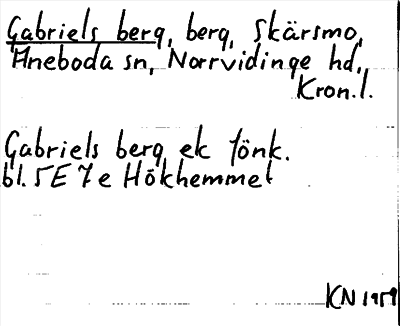 Gabriels berg, berg, Skärsmo,
Aneboda sn, Norrvidinge hd,
Kron.l.
Gabriels berg ek fönk.
bl. 5E 7e Hökhemmet
KN 1959